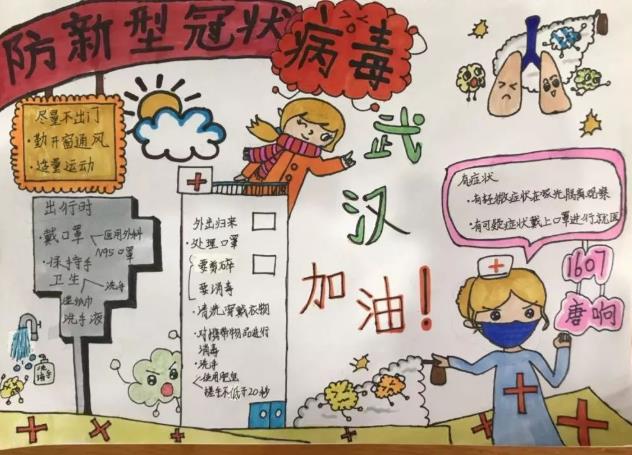 防新型冠状
病毒
尽量不出门
·勤开窗通风
·适量运动
武
汉
加油！
出行时
·戴口罩
医用外科
N95口罩
·保持手
卫生
洗手
湿纸巾
洗手液
外出归来
·处理口罩
要剪碎
要消毒
·清洗穿戴衣物
·对携带物品进行
消毒
·洗手
使用肥皂
搓手不低于20秒
有症状
·有轻微症状在家
观察
·有可疑症状戴上口罩进行就医
1607
唐响